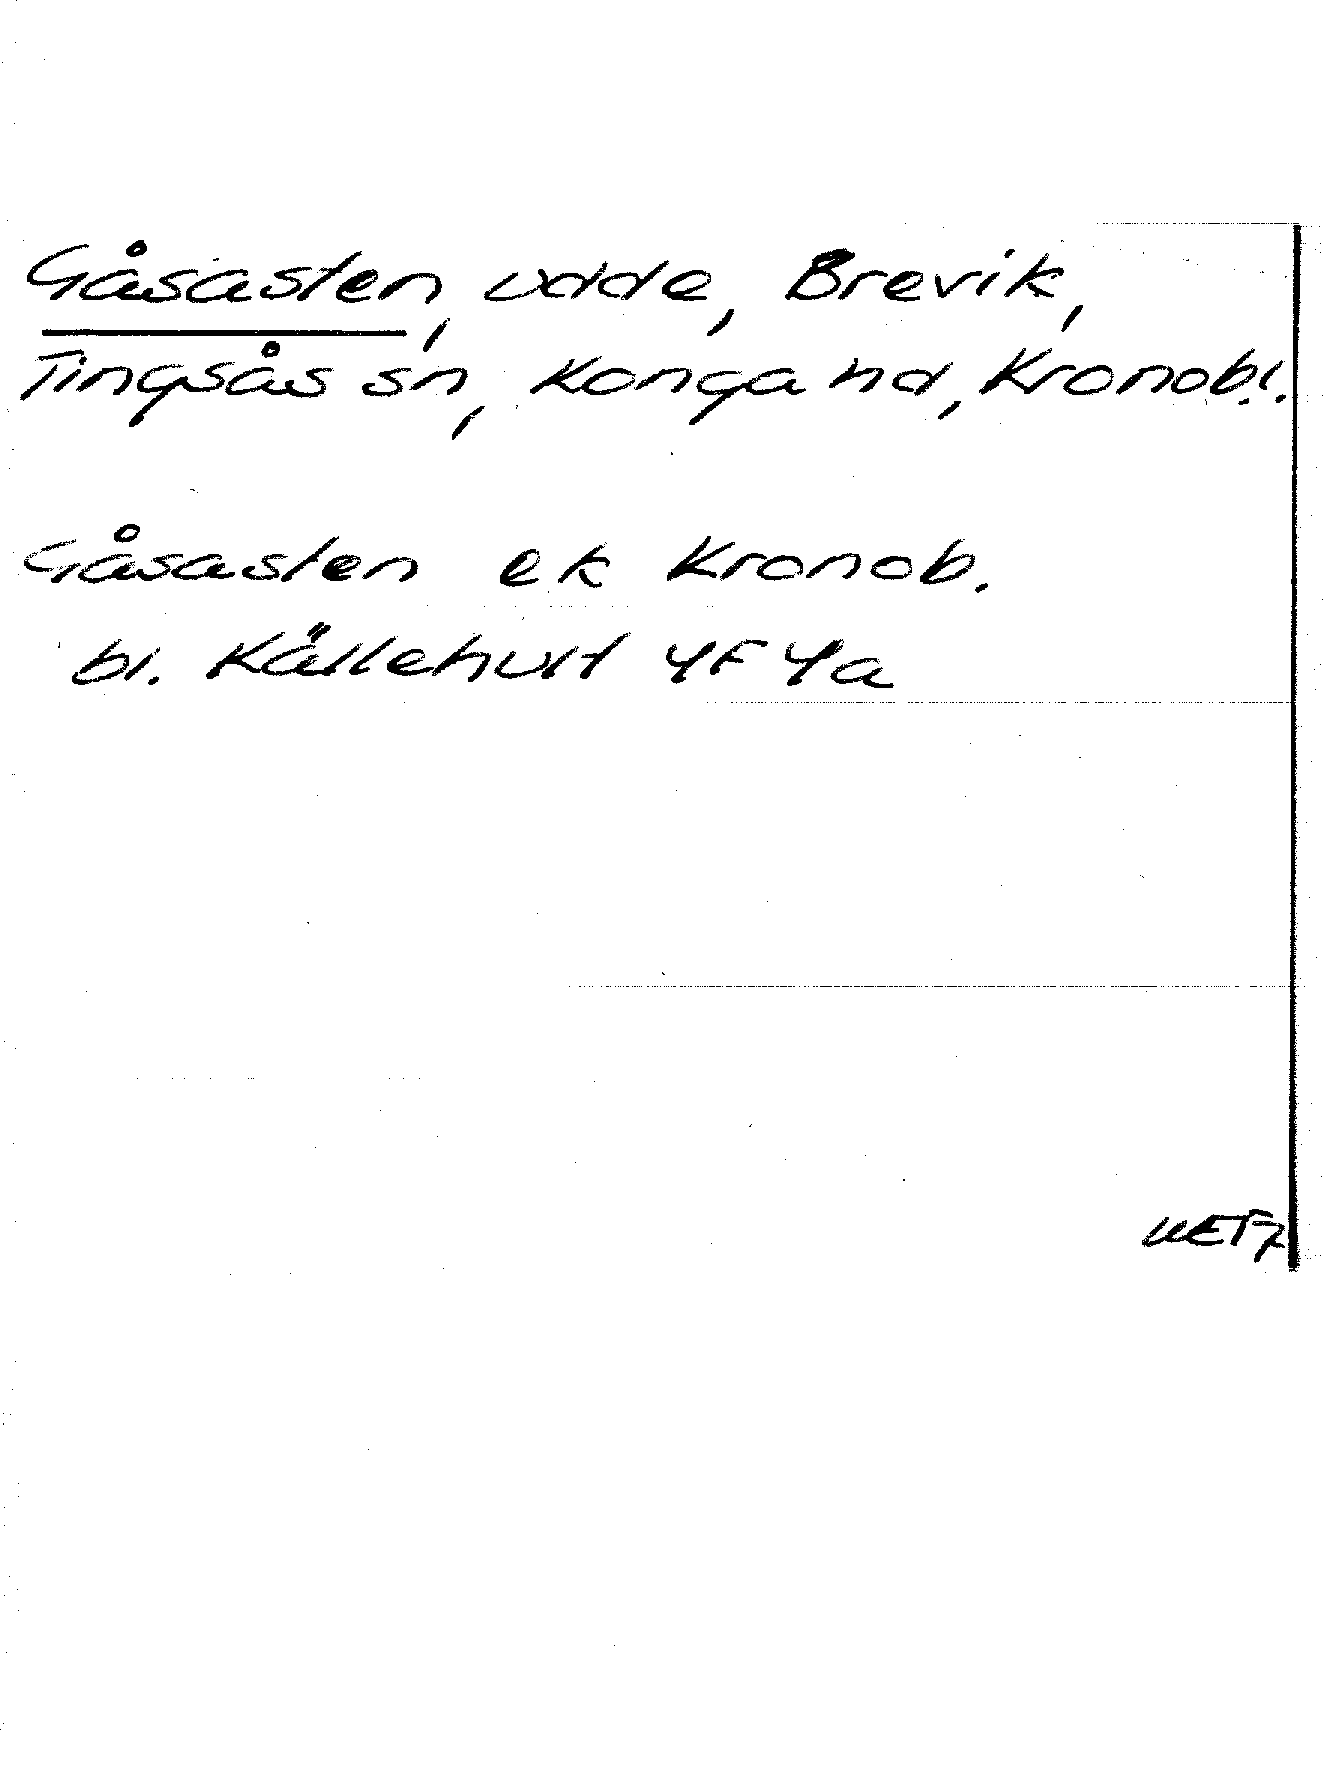 Gåsasten, udde, Brevik,
Tingsås sn, Konga hd, Kronob.l.
Gåsasten ek Kronob.
bl. Källehult 4F4a